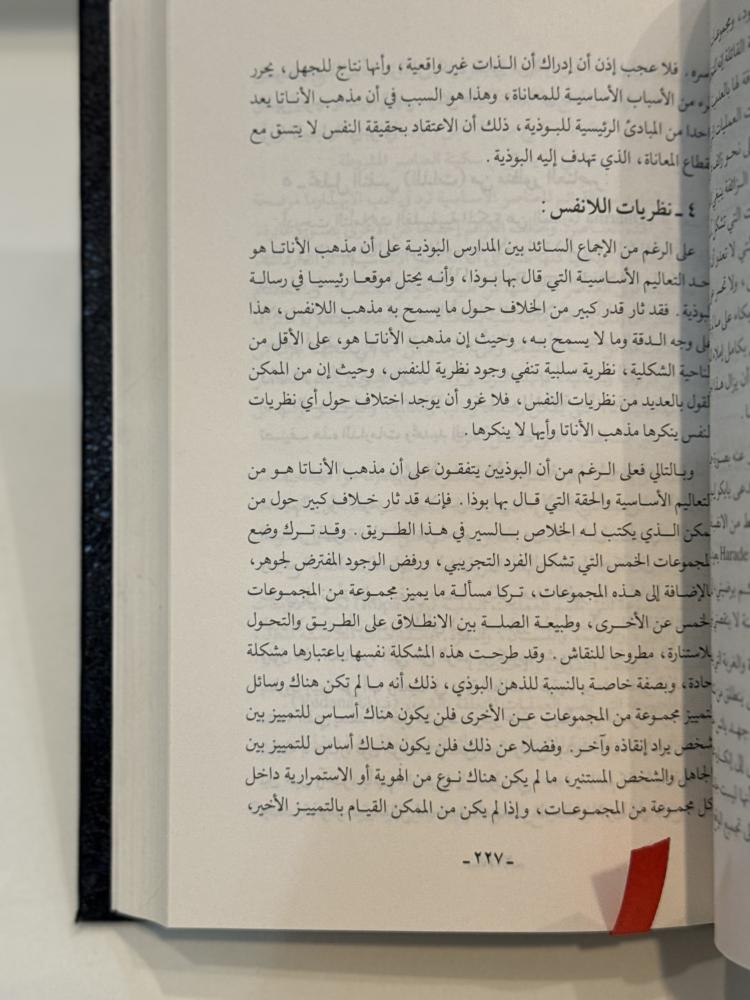 فلا عجب إذن أن إدراك أن الـذات غير واقعية، وأنها نتاج للجهل، يحرر
من الأسباب الأساسيـة للمعاناة، وهذا هو السبب في أن مذهب الأنـاتا يعد
من المبادئ الرئيسية للبـوذية، ذلك أن الاعتقاد بحقيقة النفس لا يتسق مع
المعاناة، الذي تهدف إليه البوذية.
٤ ـ نظريات اللانفس:
على الرغم من الإجماع السـائد بين المدارس البوذيـة على أن مذهب الأناتـا هو
التعاليم الأسـاسيـة التي قال بها بـوذا، وأنـه يحتل موقعـا رئيسيـا في رسالـة
فقد ثار قدر كبير من الخلاف حـول ما يسمح به مذهب اللانفس، هذا
وجه الـدقة وما لا يسمح بـه، وحيث إن مذهب الأناتـا هو، على الأقل من
الناحية الشكلية، نظرية سلبية تنفي وجود نظرية للنفس، وحيث إن من الممكن
القول بالعديد من نظريات النفس، فلا غرو أن يوجد اختلاف حول أي نظريات
النفس ينكرها مذهب الأناتا وأيها لا ينكرها.
وبـالتالي فعلى الـرغم من أن البوذيين يتفقـون على أن مذهب الأنـاتا هـو من
التعاليم الأسـاسية والحقة التي قـال بها بوذا. فإنـه قد ثار خـلاف كبير حول من
الممكن الـذي يكتب لـه الخلاص بـالسير في هـذا الطـريق. وقـد تـرك وضع
المجموعات الخمس التي تشكل الفرد التجريبي، ورفض الوجود المفترض لجوهر،
بالإضـافة إلى هـذه المجموعات، تـركا مسألـة ما يميز مجمـوعة من المجمـوعات
الخمس عن الأخـرى، وطبيعـة الصلـة بين الانطـلاق على الطـريـق والتحول
للاستنارة، مطروحا للنقاش. وقد طرحـت هذه المشكلة نفسها باعتبارها مشكلة
حادة، وبصفة خاصـة بالنسبة للذهن البوذي، ذلك أنه مـا لـم تكن هناك وسائل
لتمييز مجموعة من المجموعات عـن الأخرى فلن يكون هناك أسـاس للتمييز بين
شخص يراد إنقاذه وآخـر. وفضلا عن ذلك فلن يكون هنـاك أساس للتمييز بين
الجاهل والشخص المستنير، ما لم يكن هناك نـوع من الهوية أو الاستمرارية داخل
كل مجمـوعة من المجمـوعـات، وإذا لم يكن من الممكن القيـام بالتمييـز الأخير،
ـ ٢٢٧ ـ